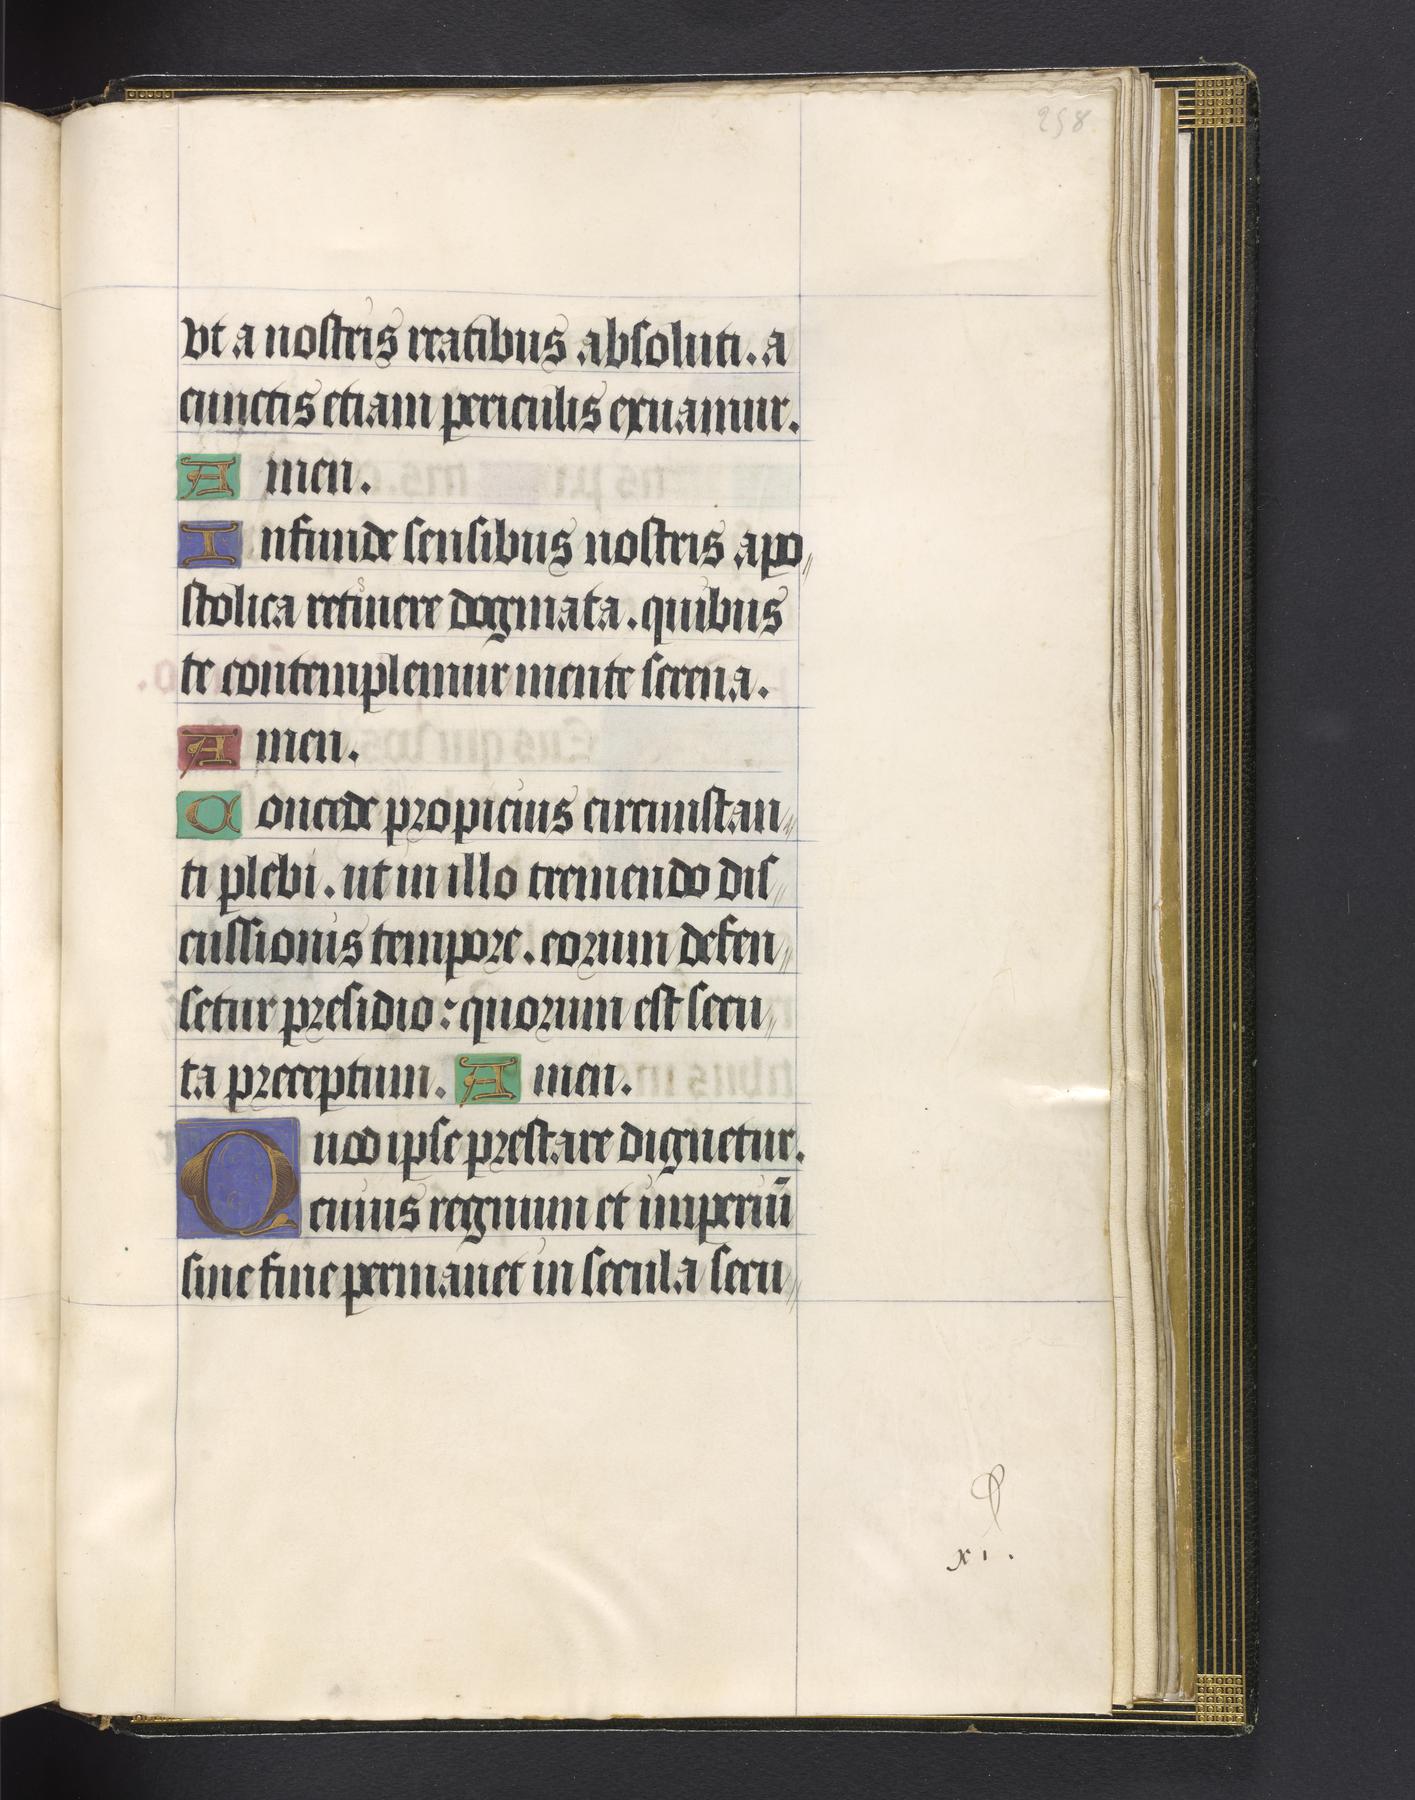 258
Ut a nostris reatibus absoluti. a
cunctis etiam periculis exuamur.
Amen.
Infunde sensibus nostris apo„
stolica retinere dogmata. quibus
te contemplemur mente serena.
Amen.
Concede propicius circunstan„
ti plebi. ut in illo tremendo dis„
cussionis tempore. eorum defen„
setur presidio: quorum est secu„
ta preceptum. Amen.
Quod ipse prestare dignetur.
cuius regnum et imperiū
sine fine permanet in secula secu„
xi.